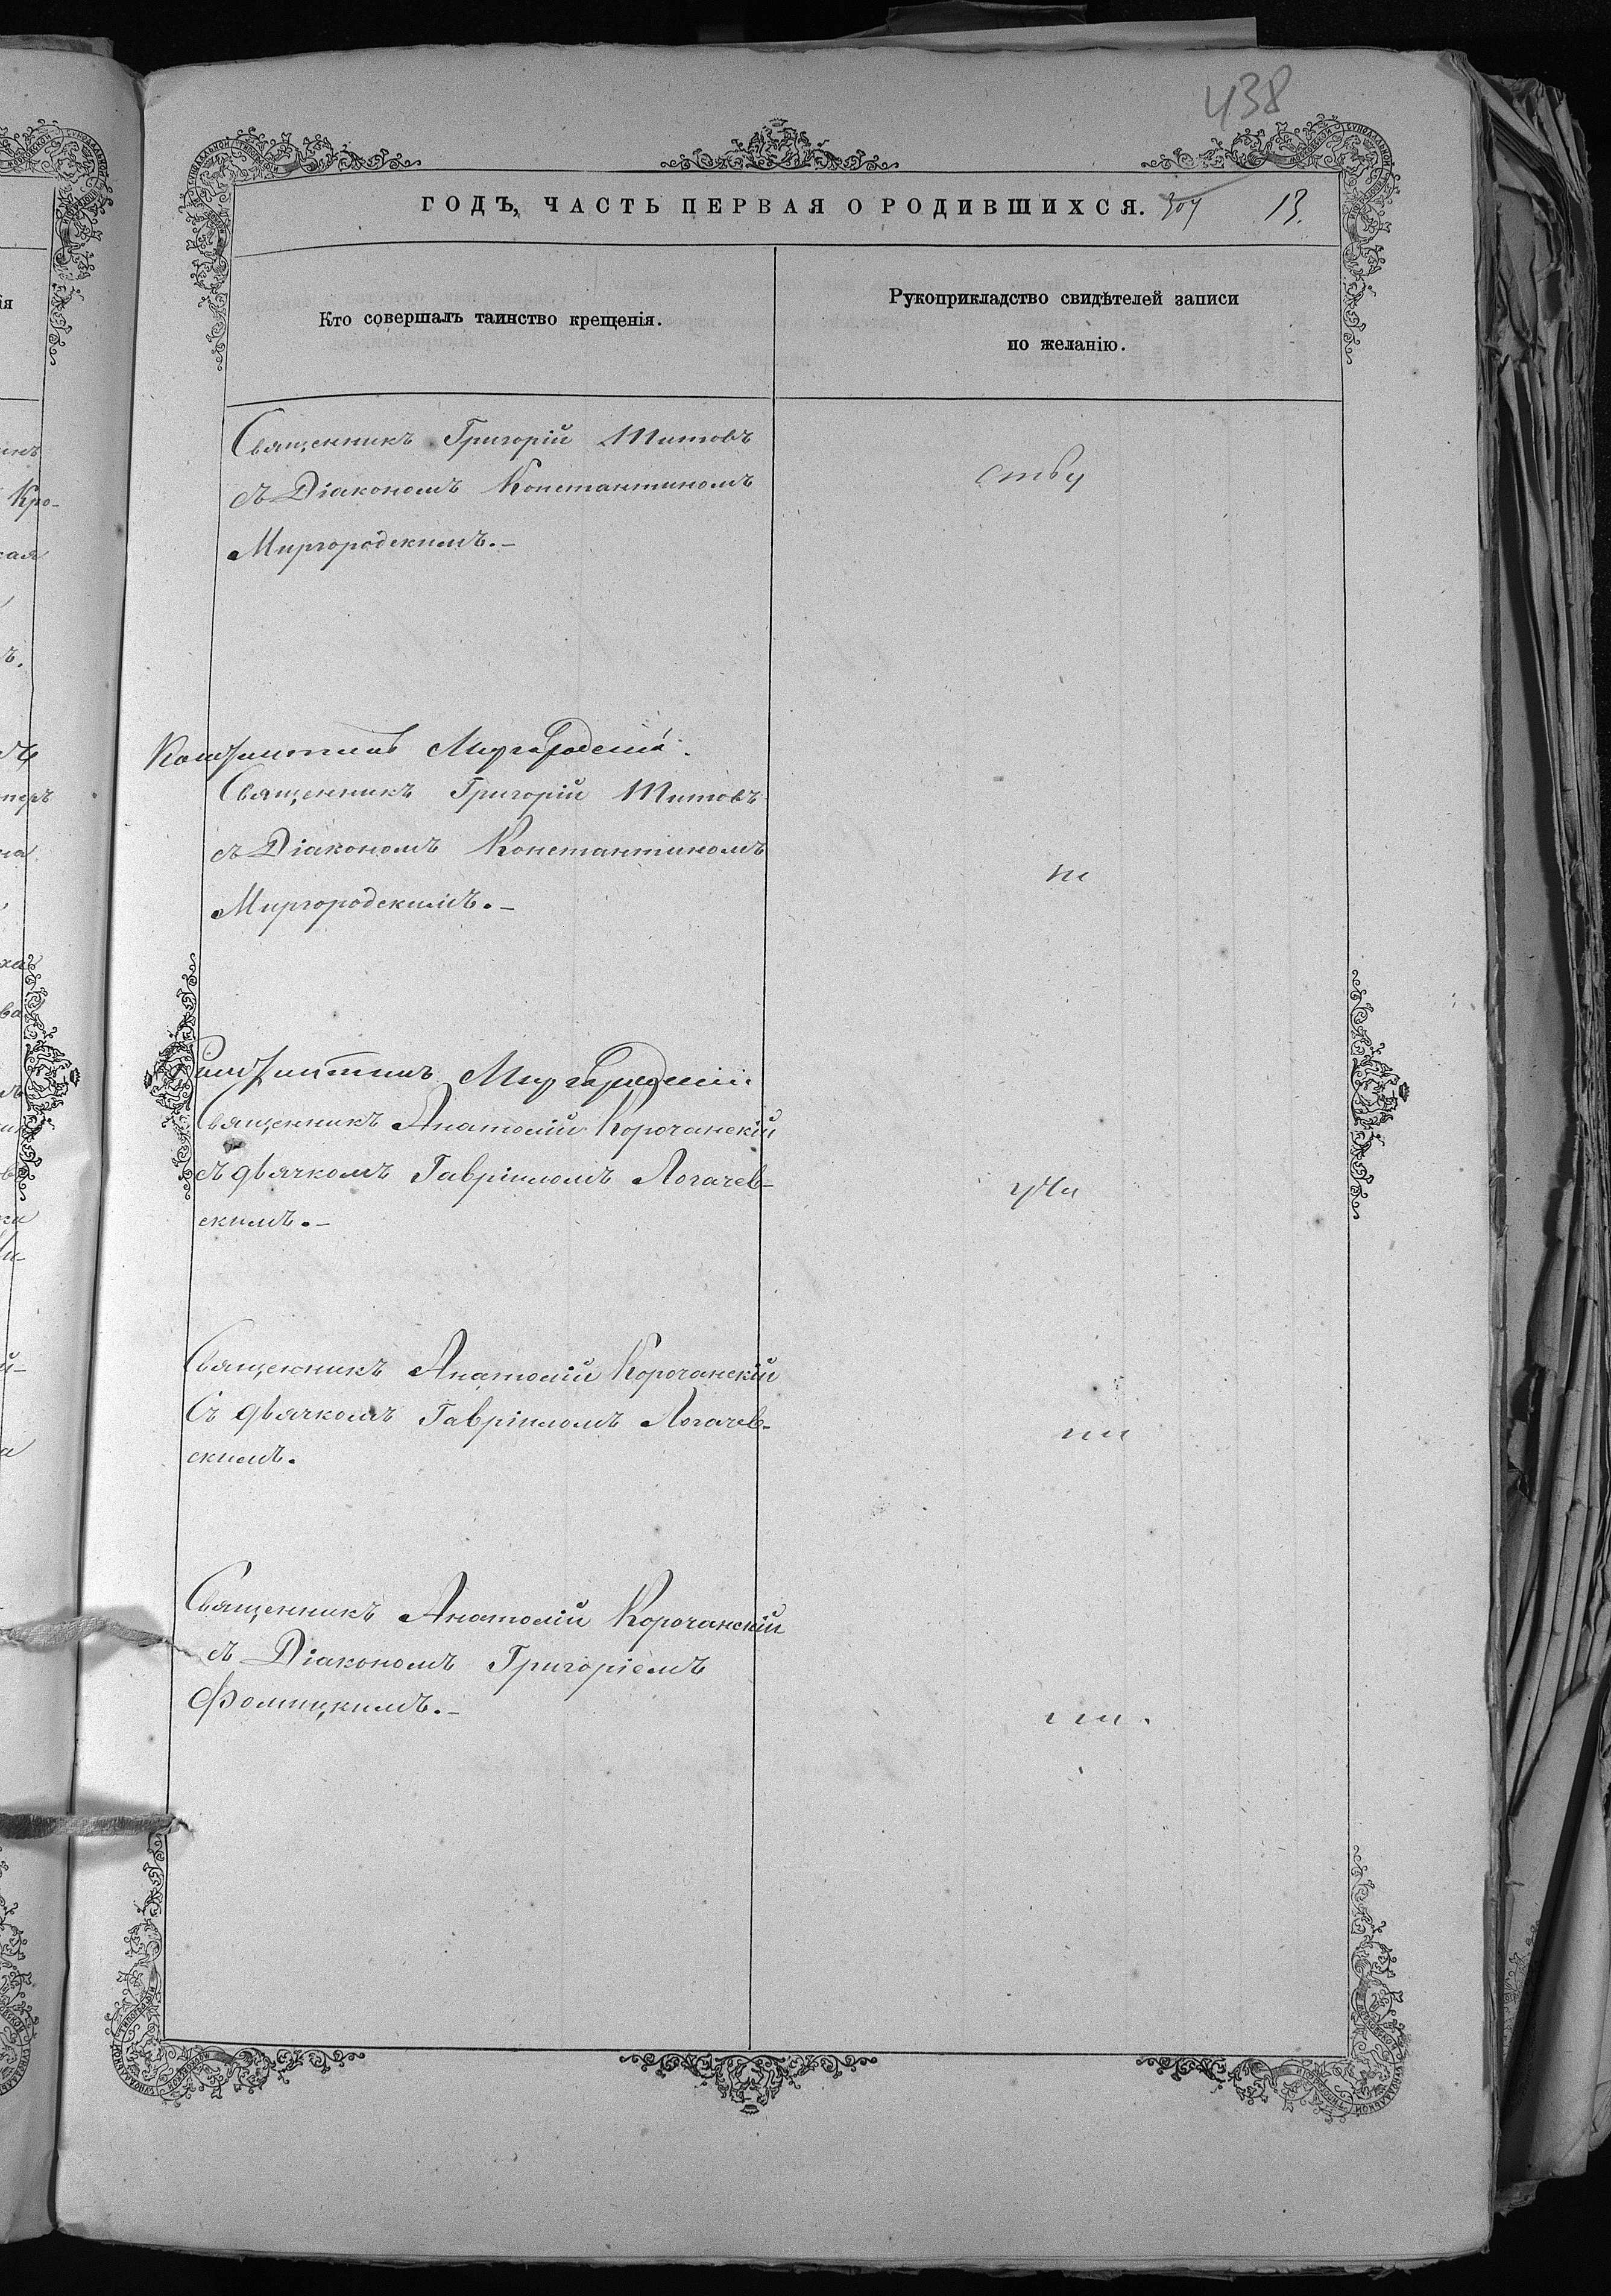 438
ГОДЪ, ЧАСТЬ ПЕРВАЯ О РОДИВШИХСЯ. 13.
Кто совершалъ таинство крещенія.
Рукоприкладство свидѣтелей записи
по желанію.
Священникъ Григорій Титовъ
съ Діакономъ Константиномъ
Миргородскимъ.-
ству
Константинъ Миргородскій.
Священникъ Григорій Титовъ
съ Діакономъ Константиномъ
Миргородскимъ.-
Константинъ Миргородскій
Священникъ Анатолій Корочанскій
съ дьячкомъ Гавріиломъ Логачев-
скимъ.-
Священникъ Анатолій Корочанскій
Съ дьячкомъ Гавріиломъ Логачев-
скимъ.
Священникъ Анатолій Корочанскій
съ Діакономъ Григоріемъ
Фомицкимъ.-